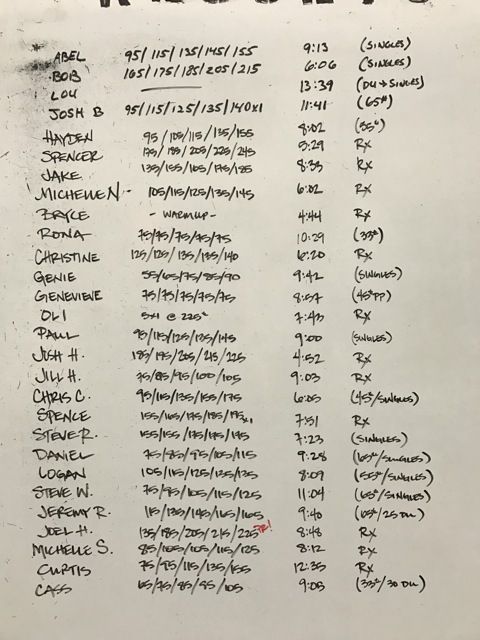 RESULTS
ABEL 95/115/135/145/155 9:13 (SINGLES)
BOB 165/175/185/205/215 6:06 (SINGLES)
LOU 13:39 (DU→SINGLES)
JOSH B 95/115/125/135/140x1 11:41 (65#)
HAYDEN 95/105/115/135/155 8:02 (35#)
SPENCER 175/185/205/225/245 5:29 RX
JAKE 135/155/165/175/185 8:33 RX
MICHELLE N - 105/115/125/135/145 6:02 RX
BRYCE - WARMUP - 4:44 RX
RONA 75/75/75/75/75 10:29 (33#)
CHRISTINE 125/125/135/135/140 6:20 RX
GENIE 55/65/75/85/90 9:42 (SINGLES)
GENEVIEVE 75/75/75/75/75 8:57 (45#PP)
OLI 5x1 @ 225# 7:43 RX
PAUL 95/115/125/135/145 9:00 (SINGLES)
JOSH H. 185/195/205/215/225 4:52 RX
JILL H. 75/85/95/100/105 9:03 RX
CHRIS C. 95/115/135/155/175 6:05 (45#/SINGLES)
SPENCE 155/165/175/185/195x1 7:51 RX
STEVE R. 155/155/175/175/195 7:23 (SINGLES)
DANIEL 75/85/95/105/115 9:28 (65#/SINGLES)
LOGAN 105/115/125/135/135 8:09 (55#/SINGLES)
STEVE W. 75/95/105/115/125 11:04 (65#/SINGLES)
JEREMY R. 115/135/145/165/165 9:40 (105#/25 DU)
JOEL H. 135/185/205/215/225 PR! 8:48 RX
MICHELLE S. 85/105/105/115/125 8:12 RX
CURTIS 75/95/115/135/155 12:35 RX
CASS 65/75/85/95/105 9:05 (33#/30 DU)